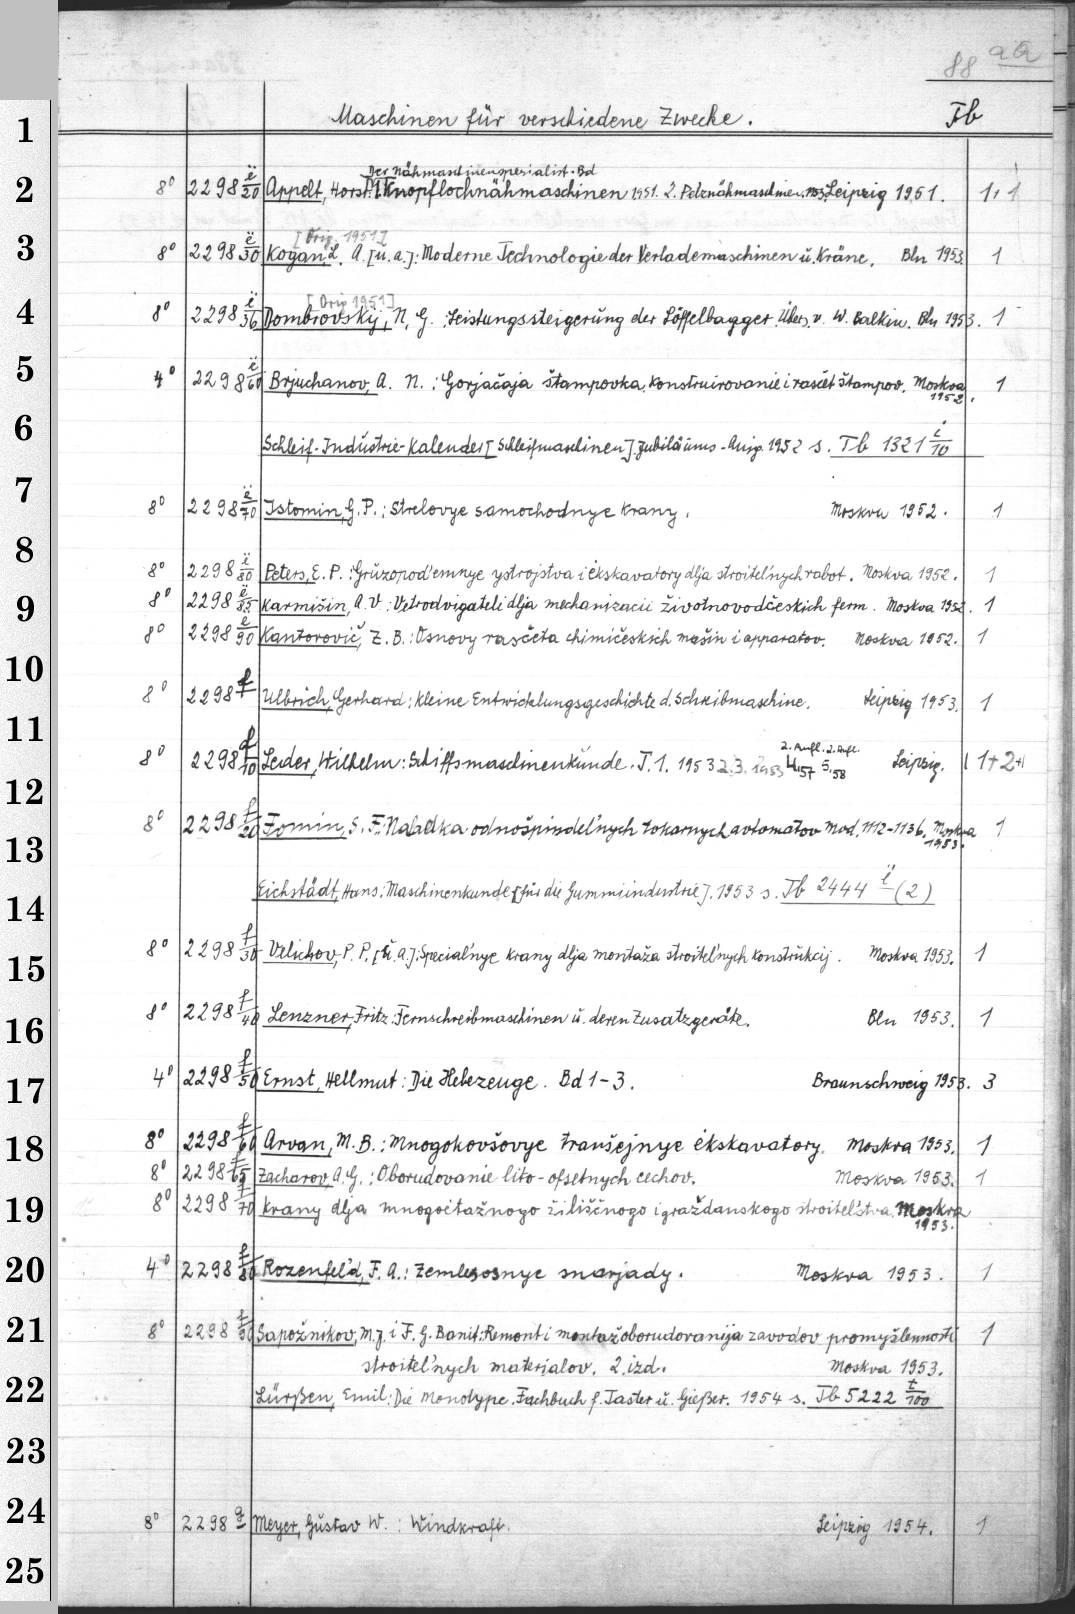 88 aa
1
Maschinen für verschiedene Zwecke. Tb
Der Nähmaschinenspezialist. Bd
2 8° 2298 ë/20 Appelt, Horst: 1. Knopflochnähmaschinen 1951. 2. Pelznähmaschinen. Leipzig 1951. 1, 1
[Orig. 1951]
3 8° 2298 ë/30 Kogan, L. A. [u. a.]: Moderne Technologie der Verlademaschinen u. Kräne. Bln 1953. 1
[Orig 1951]
4 8° 2298 ë/36 Dombrovskij, N. G.: Leistungssteigerung der Löffelbagger. Übers. v. W. Balkin. Bln 1953. 1
5 4° 2298 ë/60 Brjuchanov, A. N.: Gorjačaja štampovka. Konstruirovanie i rasčët štampov. Moskva 1
1952.
6 Schleif-Industrie-Kalender [Schleifmaschinen]. Jubiläums-Ausg. 1952 s. Tb 1321 i/10
7 8° 2298 ë/70 Istomin, G. P.: Strelovye samochodnye krany. Moskva 1952. 1
8 8° 2298 ë/80 Peters, E. P.: Gruzopod'emnye ystrojstva i ėkskavatory dlja stroitel'nych rabot. Moskva 1952. 1
9 8° 2298 ë/85 Karmišin, A. V.: Vetrodvigateli dlja mechanizacii životnovodčeskich ferm. Moskva 1952. 1
8° 2298 ë/90 Kantorovič, Z. B.: Osnovy rasčeta chimičeskich mašin i apparatov. Moskva 1952. 1
10 8° 2298 f Ulbrich, Gerhard: Kleine Entwicklungsgeschichte d. Schreibmaschine. Leipzig 1953. 1
11 2. Aufl. 2. Aufl.
8° 2298 f/10 Leder, Wilhelm: Schiffsmaschinenkunde. T. 1. 1953 2. 3. 1953 4. 57 5. 58 Leipzig. 1+2+1
12
8° 2298 f/20 Fomin, S. F.: Naladka odnošpindel'nych tokarnych avtomatov mod. 1112-1136. Moskva 1
13 1953.
14 Eichstädt, Hans: Maschinenkunde [für die Gummiindustrie]. 1953 s. Tb 2444 ï (2)
15 8° 2298 f/30 Velichov, P. P. [u. a.]: Special'nye krany dlja montaža stroitel'nych konstrukcij. Moskva 1953. 1
16 8° 2298 f/40 Lenzner, Fritz: Fernschreibmaschinen u. deren Zusatzgeräte. Bln 1953. 1
17 4° 2298 f/50 Ernst, Hellmut: Die Hebezeuge. Bd 1-3. Braunschweig 1953. 3
18 8° 2298 f/60 Arvan, M. B.: Mnogokovšovye tranšejnye ėkskavatory. Moskva 1953. 1
8° 2298 f/65 Zacharov, A. G.: Oborudovanie lito-ofsetnych cechov. Moskva 1953. 1
19 8° 2298 f/70 Krany dlja mnogoėtažnogo žiliščnogo i graždanskogo stroitel'stva. Moskva
1953.
20 4° 2298 f/80 Rozenfel'd, F. A.: Zemlesosnye snarjady. Moskva 1953. 1
21 8° 2298 f/90 Sapožnikov, M. J. i F. G. Banit: Remont i montaž oborudovanija zavodov promyšlennosti 1
stroitel'nych materialov. 2. izd. Moskva 1953.
22 Lürßen, Emil: Die Monotype. Fachbuch f. Taster u. Gießer. 1954 s. Tb 5222 t/100
23
24 8° 2298 g Meyer, Gustav W.: Windkraft. Leipzig 1954. 1
25